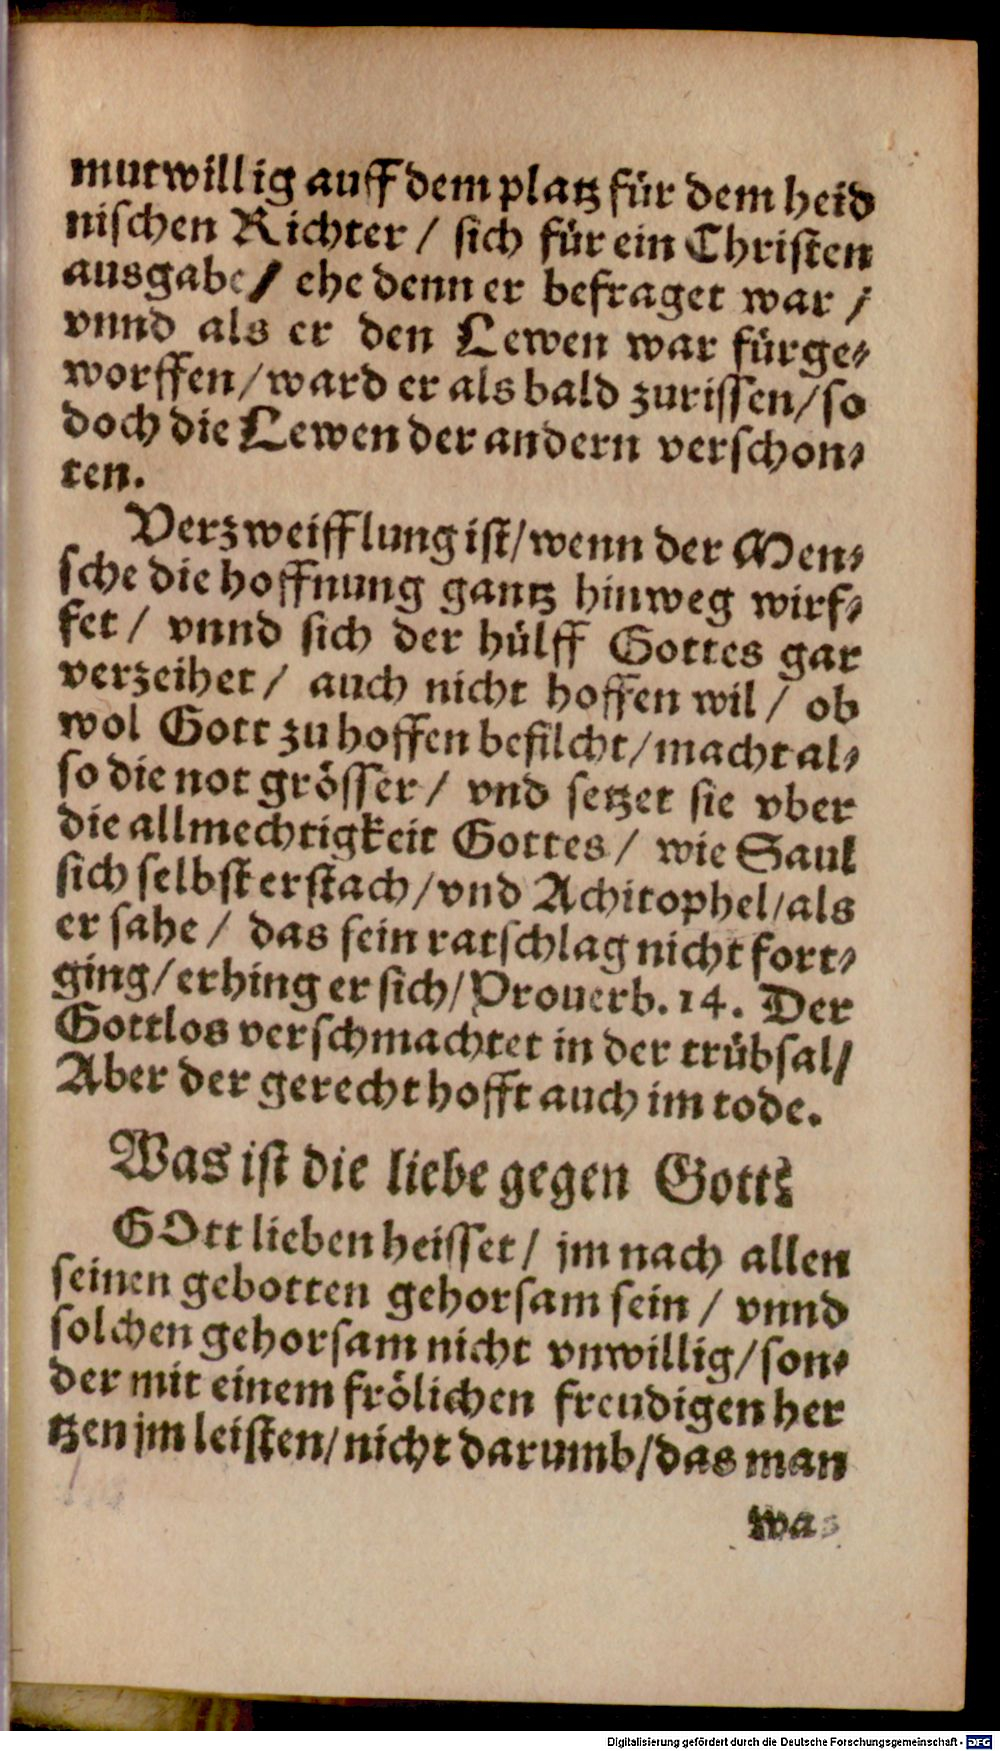 mutwillig auff dem platz für dem heid
nischen Richter / sich für ein Christen
ausgabe / ehe denn er befraget war /
vnnd als er den Lewen war fürge-
worffen / ward er als bald zurissen / so
doch die Lewen der andern verschon-
ten.
Verzweifflung ist / wenn der Men-
sche die hoffnung gantz hinweg wirf-
fet / vnnd sich der hülff Gottes gar
verzeihet / auch nicht hoffen wil / ob
wol Gott zu hoffen befilcht / macht al-
so die not grösser / vnd setzet sie vber
die allmechtigkeit Gottes / wie Saul
sich selbst erstach / vnd Achitophel / als
er sahe / das sein ratschlag nicht fort-
ging / erhing er sich / Prouerb. 14. Der
Gottlos verschmachtet in der trübsal /
Aber der gerecht hofft auch im tode.
Was ist die liebe gegen Gott?
GOtt lieben heisset / jm nach allen
seinen gebotten gehorsam sein / vnnd
solchen gehorsam nicht vnwillig / son-
der mit einem frölichen freudigen her
tzen jm leisten / nicht darumb / das man
was
Digitalisierung gefördert durch die Deutsche Forschungsgemeinschaft - DFG